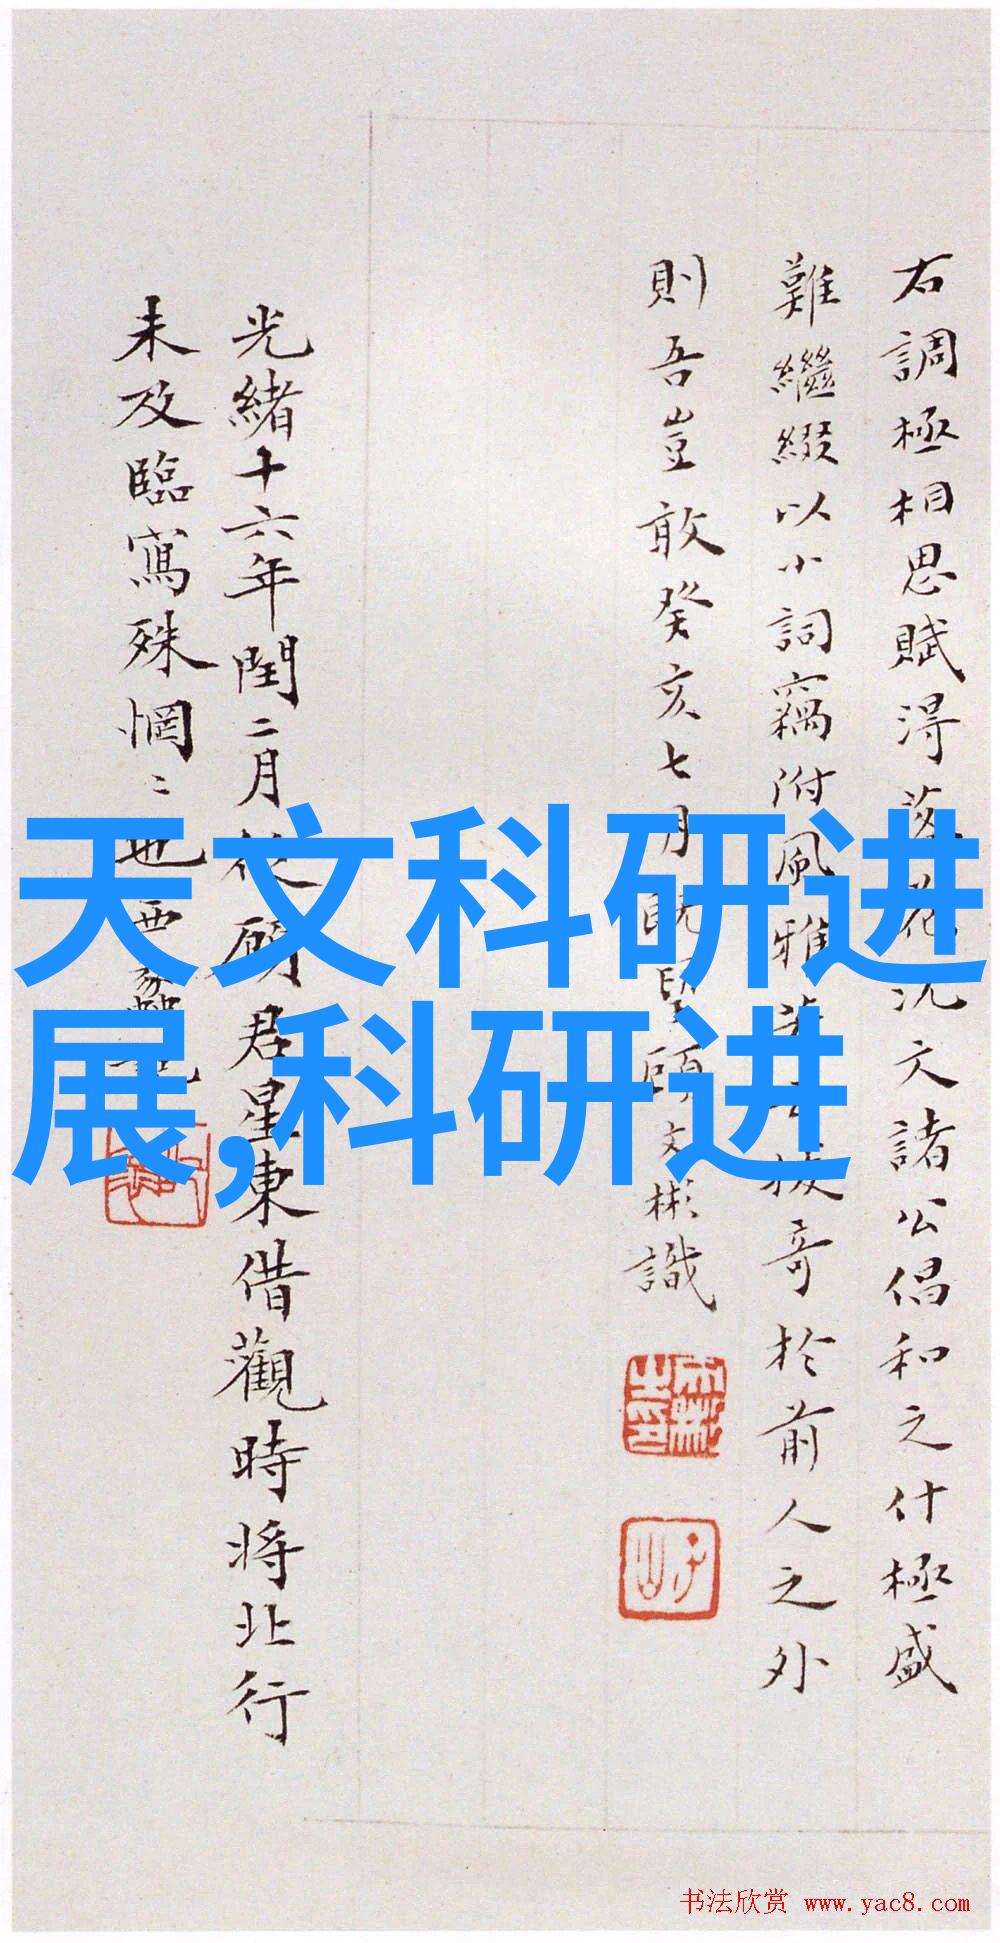 右調極相思賦得落花沈文諸公倡和之什極盛
難繼綴以小詞竊附風雅
拔奇於前人之外
則吾豈敢癸亥七月既望顧文彬識
光緒十六年閏二月從顧君星東借觀時將北行
未及臨寫殊惘〻也西蠡
天文科研进
展,科研进
书法欣赏 www.yac8.com